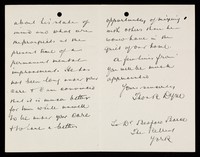 about his state of
mind and what were
the prospects at the
present time of a
permanent mental
improvement. He has
not been long under your
care & I am convinced
that it is much better
for him while unwell
to be under your care
& to have a better
opportunity of mixing
with others than he
would have in the
quiet of our home.
A few lines from
you will be much
appreciated
Yours sincerely
To Dr. Bedford Pierce
The Retreat
York